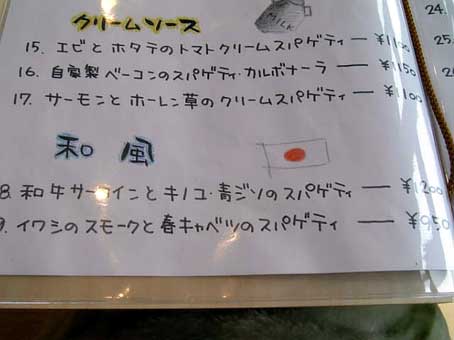 MILK
クリームソース
15. エビとホタテのトマトクリームスパゲティー ¥1100
16. 自家製ベーコンのスパゲティ・カルボナーラ ー ¥1150
17. サーモンとホーレン草のクリームスパゲティー ¥1100
和風
8. 和牛サーロインとキノコ・青ジソのスパゲティ ー ¥1200
9. イワシのスモークと春キャベツのスパゲティ ー ¥950
24.
25.